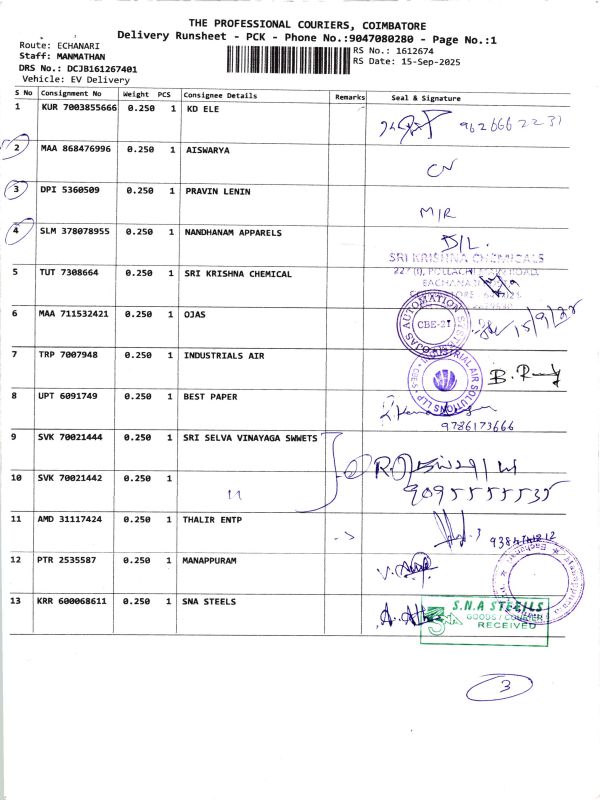 THE PROFESSIONAL COURIERS, COIMBATORE
Delivery Runsheet - PCK - Phone No.:9047080280 - Page No.:1
Route: ECHANARI
RS No.: 1612674
Staff: MANMATHAN
RS Date: 15-Sep-2025
DRS No.: DCJB161267401
Vehicle: EV Delivery
S No Consignment No Weight PCS Consignee Details Remarks Seal & Signature
1 KUR 7003855666 0.250 1 KD ELE 962666 2231
2 MAA 868476996 0.250 1 AISWARYA CN
3 DPI 5360509 0.250 1 PRAVIN LENIN M/R
4 SLM 378078955 0.250 1 NANDHANAM APPARELS D/L.
SRI KRISHNA CHEMICALS
5 TUT 7308664 0.250 1 SRI KRISHNA CHEMICAL
6 MAA 711532421 0.250 1 OJAS OJAS AUTOMATION CBE-21 15/9/25
7 TRP 7007948 0.250 1 INDUSTRIALS AIR INDUSTRIAL AIR SOLUTIONS LLP B.
8 UPT 6091749 0.250 1 BEST PAPER
9786173666
9 SVK 70021444 0.250 1 SRI SELVA VINAYAGA SWWETS
10 SVK 70021442 0.250 1 11 9095555535
11 AMD 31117424 0.250 1 THALIR ENTP
12 PTR 2535587 0.250 1 MANAPPURAM
13 KRR 600068611 0.250 1 SNA STEELS
S.N.A STEELS
GOODS / COURIER
RECEIVED
3